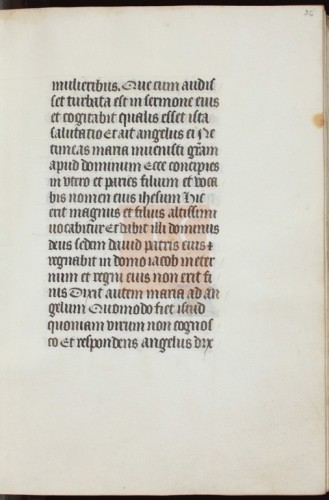 26
mulieribus. Que cum audis
set turbata est in sermone eius
et cogitabat qualis esset ista
salutatio Et ait angelus ei Ne
timeas maria invenisti gram
apud dominum Ecce concipies
in utero et paries filium et voca
bis nomen eius ihesum Hic
erit magnus et filius altissimi
vocabitur Et dabit illi dominus
deus sedem david patris eius et
regnabit in domo iacob in eter
num et regni eius non erit fi
nis Dixit autem maria ad an
gelum Quomodo fiet istud
quoniam virum non cognos
co Et respondens angelus dix